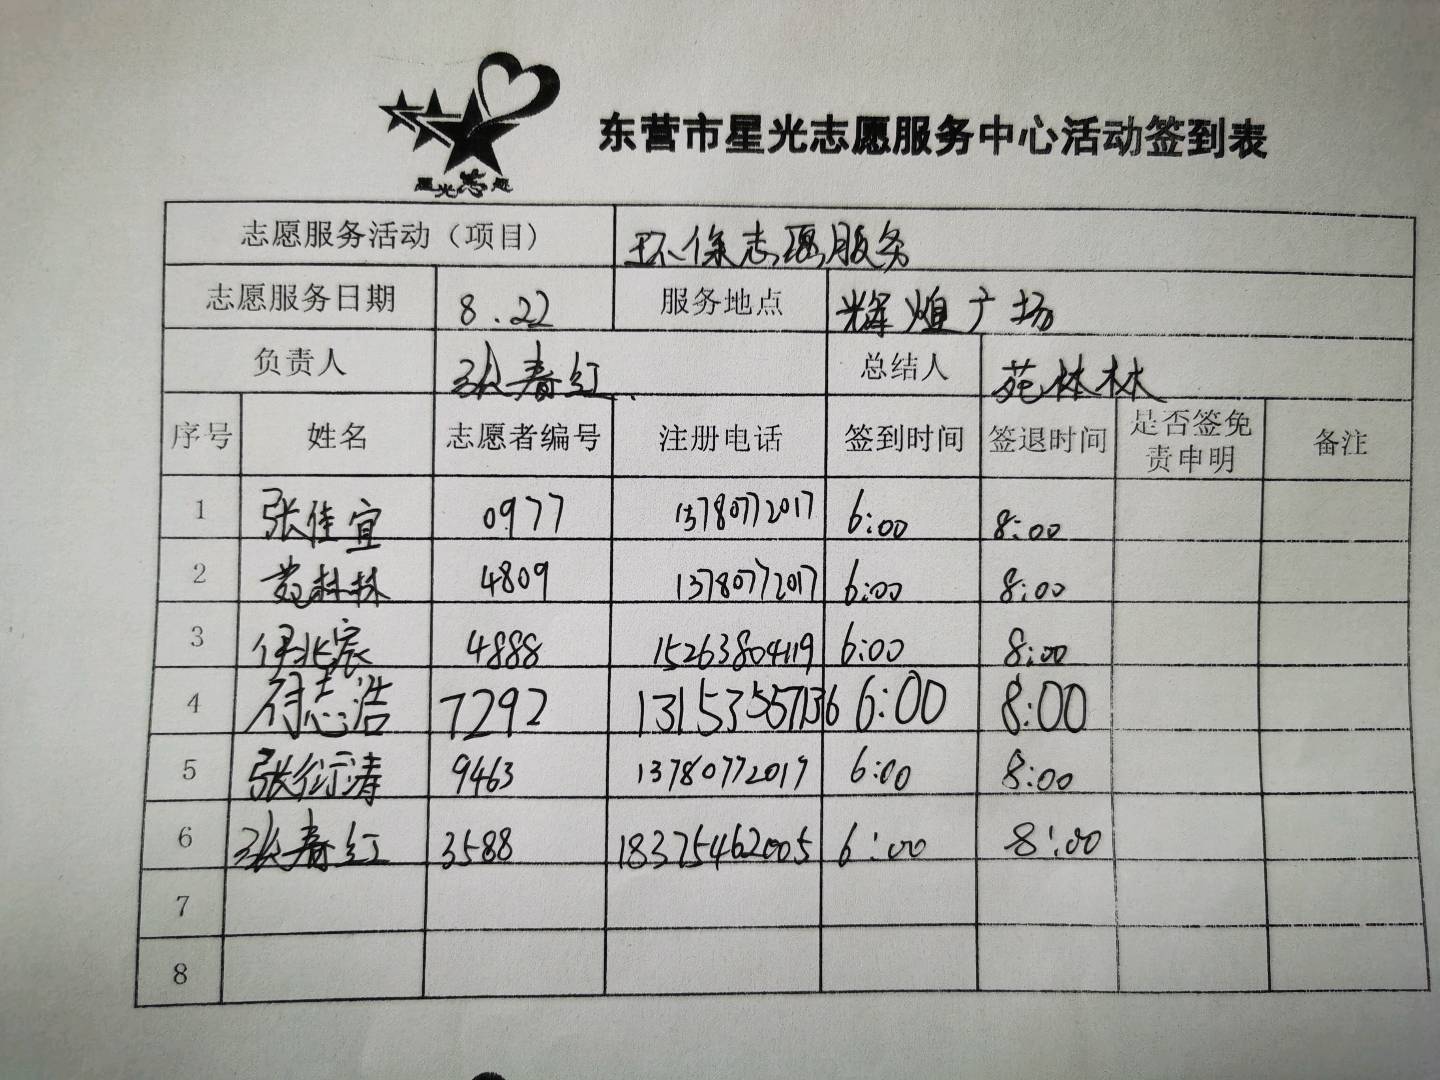 星光志愿
东营市星光志愿服务中心活动签到表
志愿服务活动（项目） 环保志愿服务
志愿服务日期 8.22 服务地点 辉煌广场
负责人 张春红 总结人 苑林林
序号 姓名 志愿者编号 注册电话 签到时间 签退时间 是否签免责申明 备注
1 张佳宜 0977 13780772017 6:00 8:00
2 苑林林 4809 13780772017 6:00 8:00
3 伊北宸 4888 15263804119 6:00 8:00
4 志浩 7292 13153557136 6:00 8:00
5 张衍涛 9463 13780772017 6:00 8:00
6 张春红 3588 18375462005 6:00 8:00
7
8